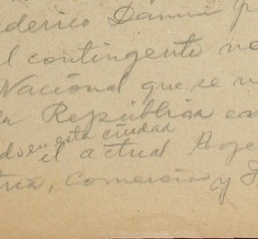 derico Damm
l contingente
Nacional que se
a República en
en esta ciudad
el actual
tria, Comercio y